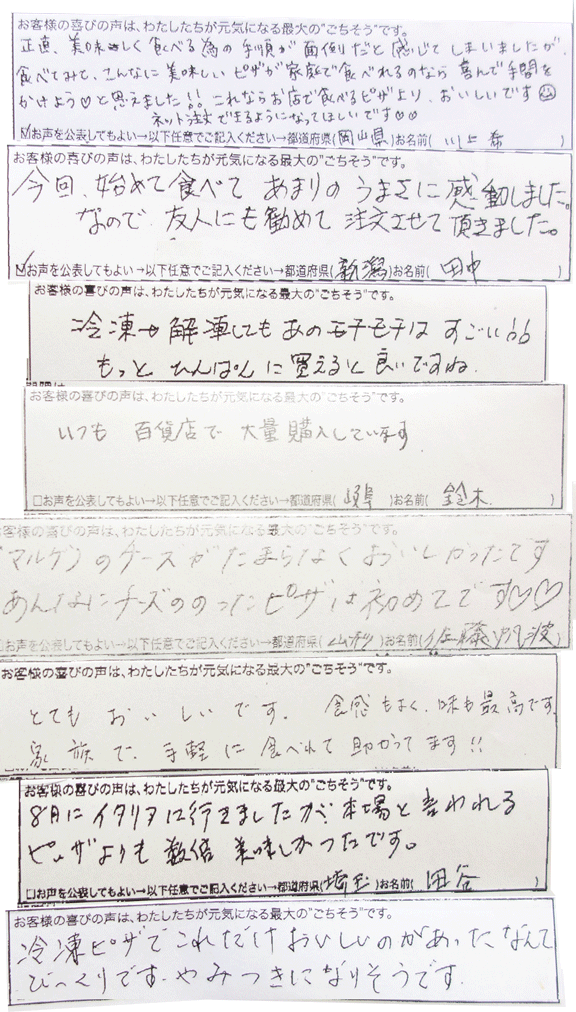 お客様の喜びの声は、わたしたちが元気になる最大の"ごちそう"です。
正直、美味しく食べる為の手順が面倒だと感じてしまいましたが、
食べてみて、こんなに美味しいピザが家庭で食べれるのなら喜んで手間を
かけよう♡と思えました!! これならお店で食べるピザより、おいしいです☺
ネット注文できるようになってほしいです♡♡
☑お声を公表してもよい→以下任意でご記入ください→都道府県(岡山県)お名前(川上 )
お客様の喜びの声は、わたしたちが元気になる最大の"ごちそう"です。
今回、始めて食べて あまりのうまさに感動しました。
なので、友人にも勧めて注文させて頂きました。
☑お声を公表してもよい→以下任意でご記入ください→都道府県(新潟)お名前(田中 )
お客様の喜びの声は、わたしたちが元気になる最大の"ごちそう"です。
冷凍→解凍してもあのモチモチはすごい!!
もっと、ひんぱんに買えると良いですね。
お客様の喜びの声は、わたしたちが元気になる最大の"ごちそう"です。
いつも 百貨店で 大量購入しています
□お声を公表してもよい→以下任意でご記入ください→都道府県(岐阜)お名前(鈴木 )
客様の喜びの声は、わたしたちが元気になる最大の"ごちそう"です。
(マルゲ)のチーズがたまらなくおいしかったです
あんなにチーズののったピザは初めてです♡♡
□お声を公表してもよい→以下任意でご記入ください→都道府県(山形)お名前(佐藤 )
お客様の喜びの声は、わたしたちが元気になる最大の"ごちそう"です。
とてもおいしいです。 食感もよく、味も最高です。
家族で、手軽に食べれて助かってます!!
お客様の喜びの声は、わたしたちが元気になる最大の"ごちそう"です。
8月にイタリアに行きましたが、本場と言われる
ピザよりも数倍美味しかったです。
□お声を公表してもよい→以下任意でご記入ください→都道府県(埼玉)お名前(田谷 )
お客様の喜びの声は、わたしたちが元気になる最大の"ごちそう"です。
冷凍ピザでこれだけおいしいのがあったなんて
びっくりです。やみつきになりそうです。